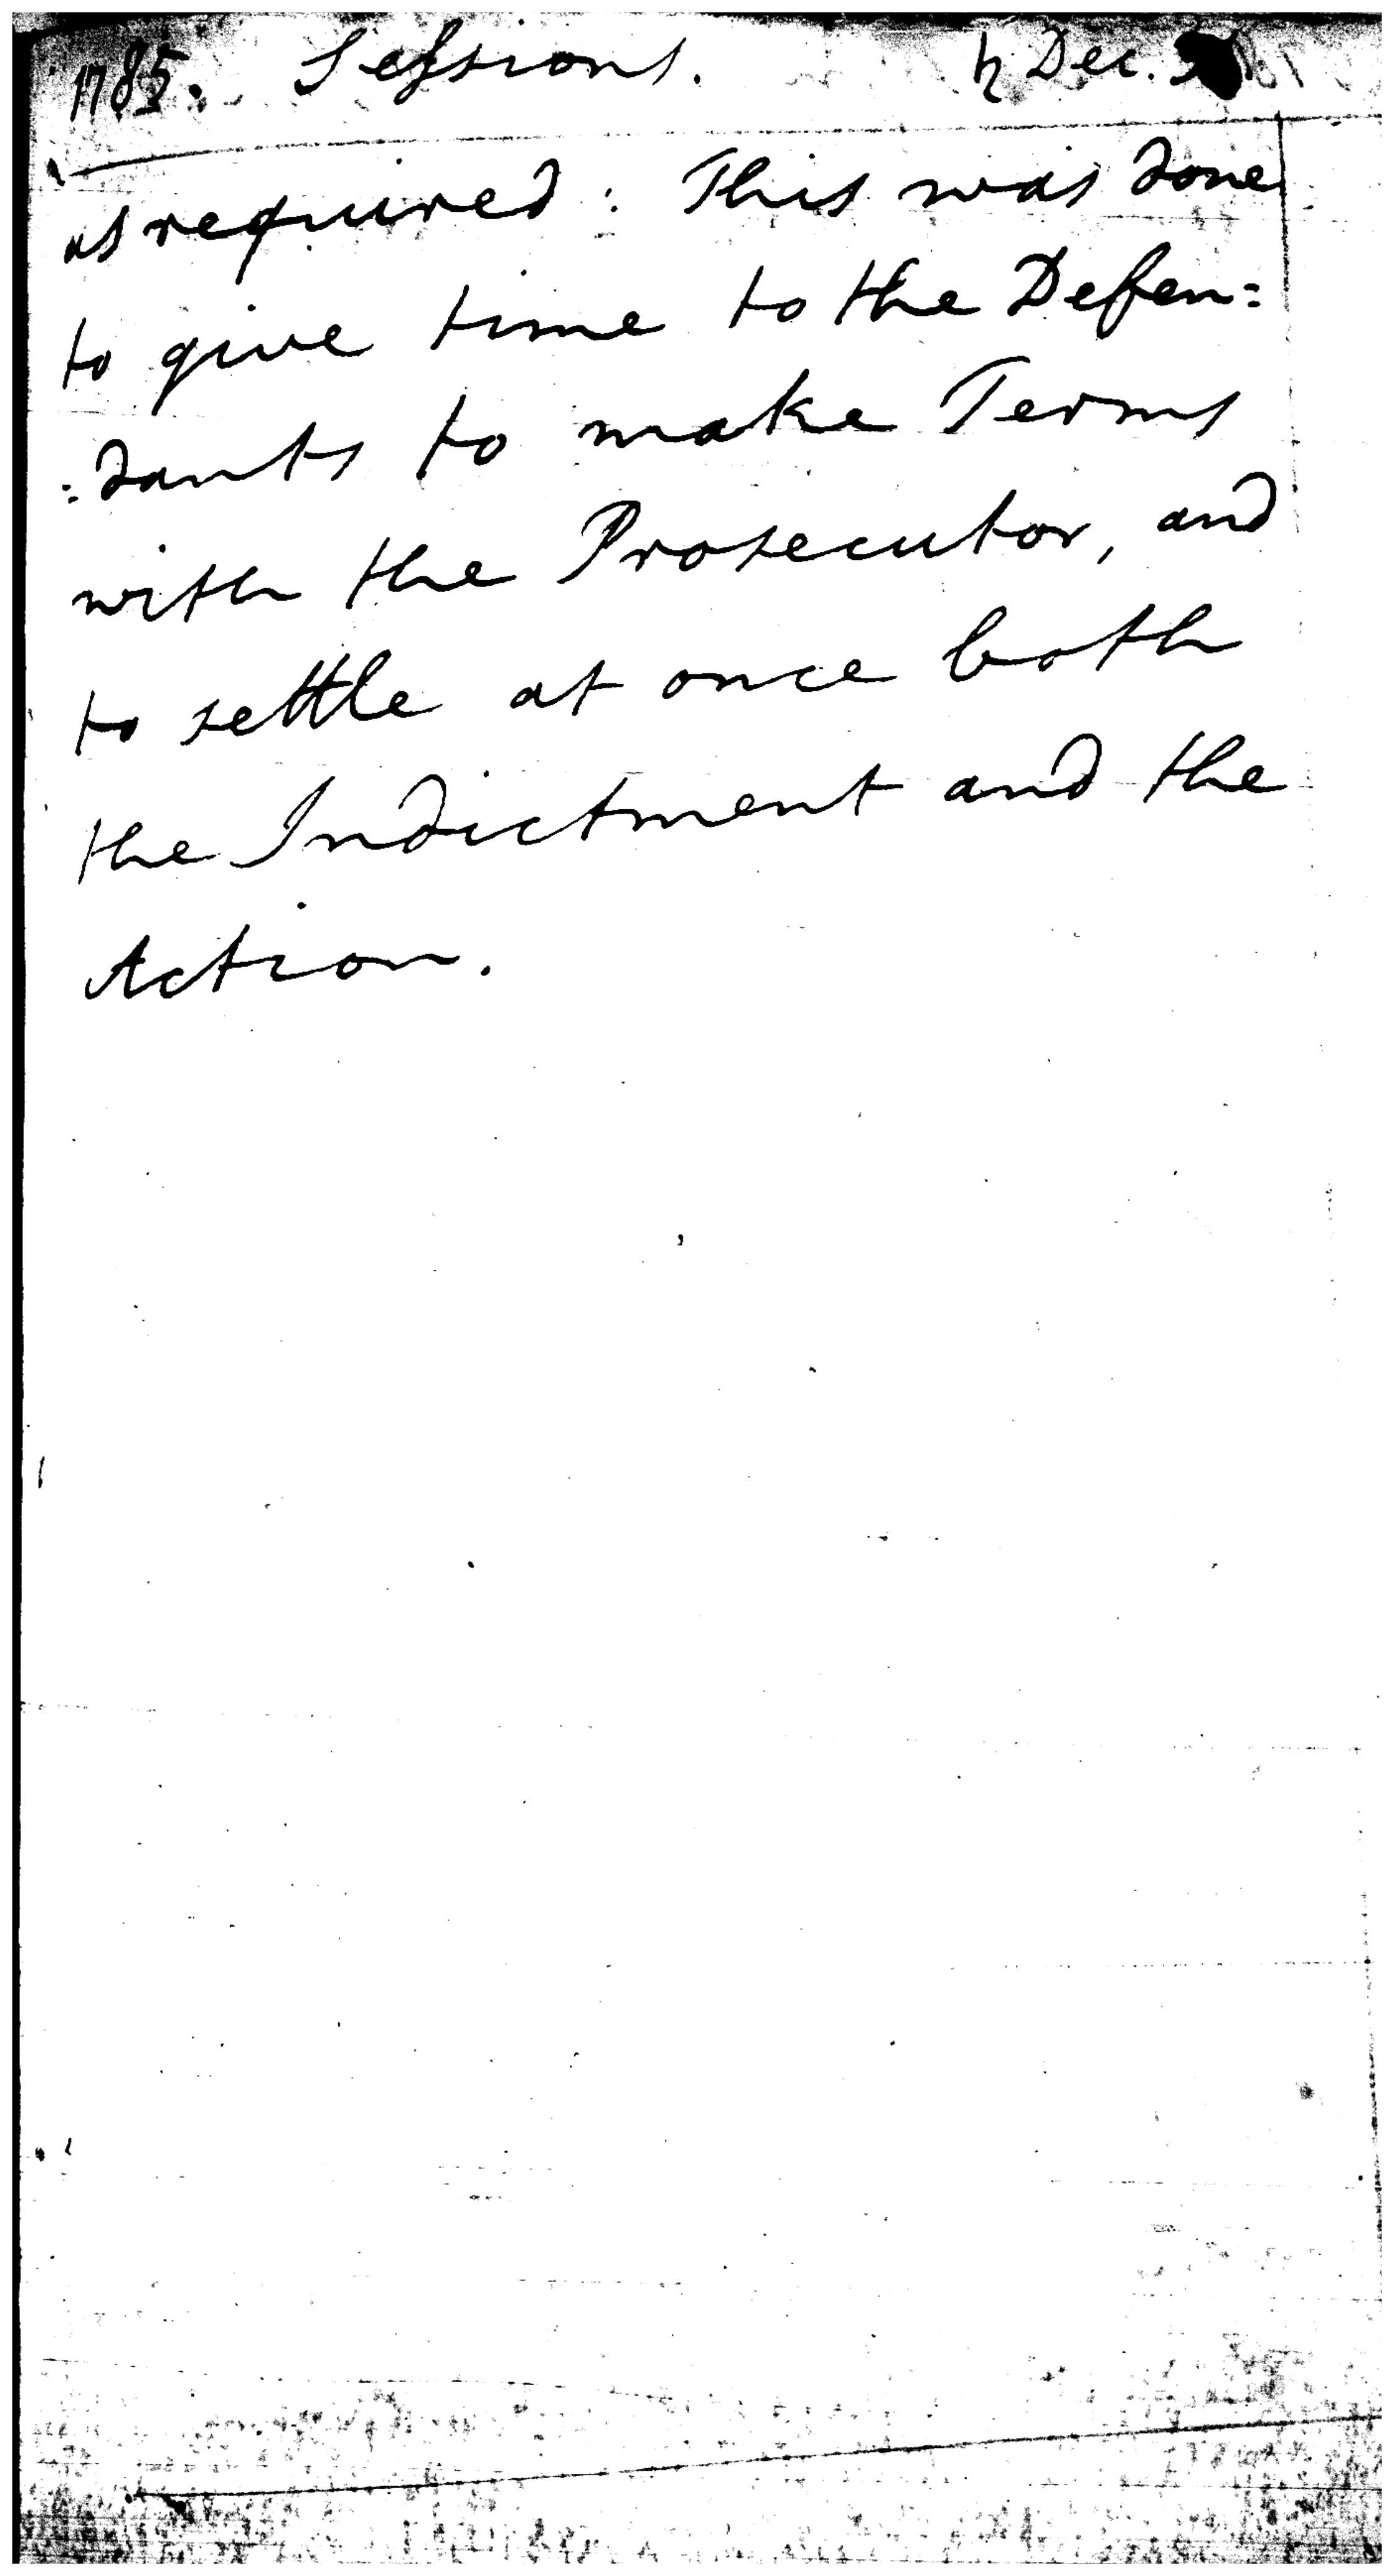 1785. Sessions. ♄ Dec.
as required: This was done
to give time to the Defen=
=dants to make Terms
with the Prosecutor, and
to settle at once both
the Indictment and the
Action.